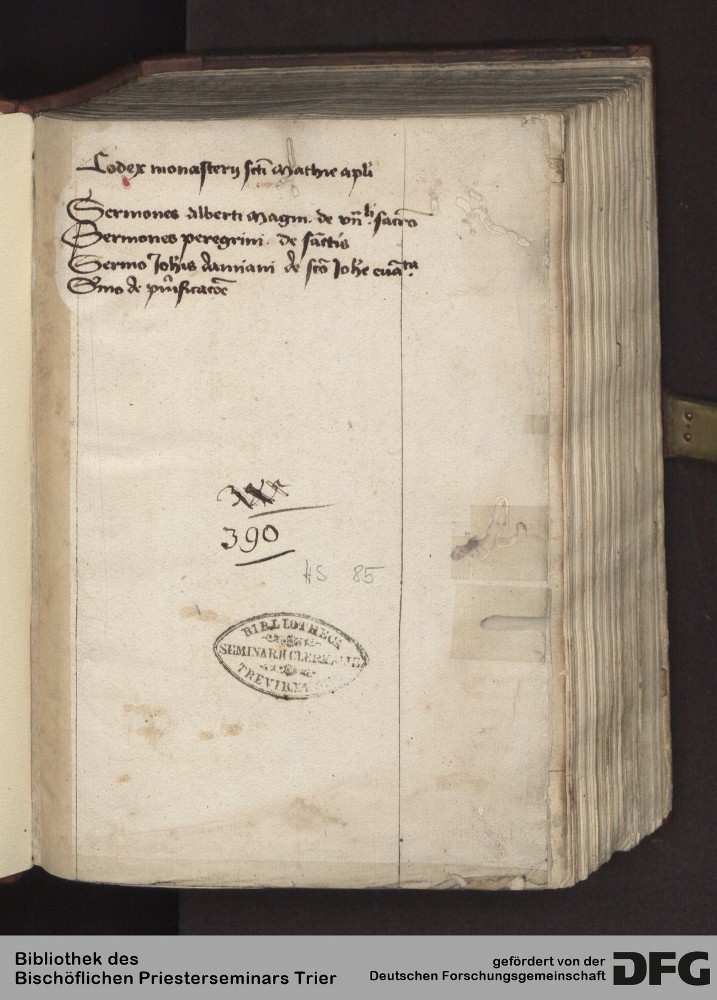 Codex monasterij scti Mathie apli
Sermones Alberti Magni de vn̄bli sacro
Sermones peregrini de sanctis
Sermo Johis damiani de sco Johe euāta
Smo de purificacoe
390
HS 85
BIBLIOTHECA
SEMINARII CLERICALIS
TREVIRENSIS
Bibliothek des
Bischöflichen Priesterseminars Trier
gefördert von der
Deutschen Forschungsgemeinschaft
DFG